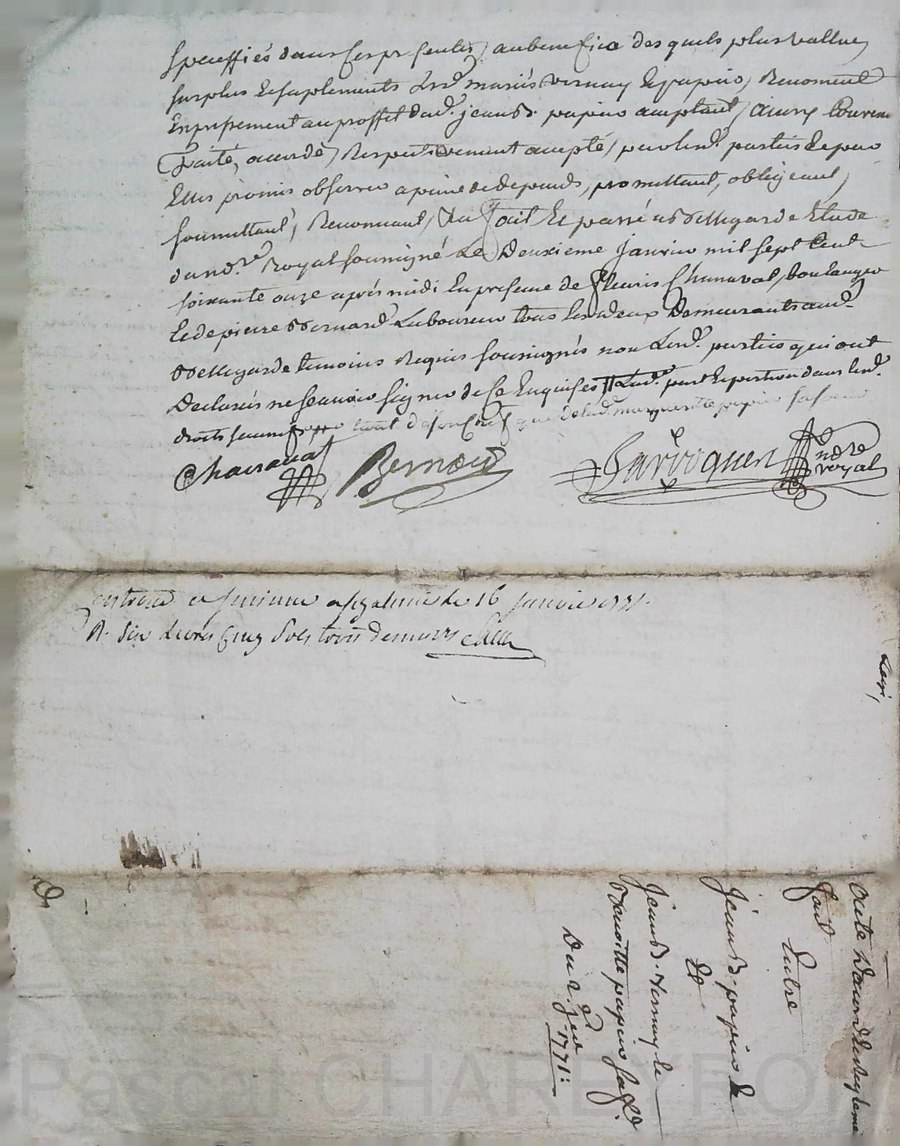 speciffiés dans ses presentes, au benefice des quels plus vallue,
surplus et suplements Lesd. mariés vernay et papin, Renoncent
Expressement au proffit dud. jean B. papin acceptant, ainsy Convenu
Traité, accordé, Respectivement accepté, par lesd. parties et par
Elles promis observer a peine de depends, promettant, obligeant,
soumettant, Renoncant, &a fait et passé a Bellegarde Etude
du no.re Royal soussigné Le Deuxieme janvier mil sept Cent
soixante onze après midi En presence de fleuris Chanaval, boulanger
et de pierre Bernard Laboureur tous les deux Demeurants aud.
Bellegarde temoins Requis soussignés non Lesd. parties qui ont
Declarés ne scavoir signer de ce Enquises Lad. part et portion dans lesd.
droits tant de son chef que de lad. marguerite papin sa
Chanaval Bernard no.re royal
Controllé et le 16 janvier 1771.
R. six Livres Cinq sols trois deniers
acte
fait
Entre
Jean B. papin
Et
Jean B. Vernay et
Benoitte papin sa
Du 2.e Jer 1771.
Pascal CHAREYRON